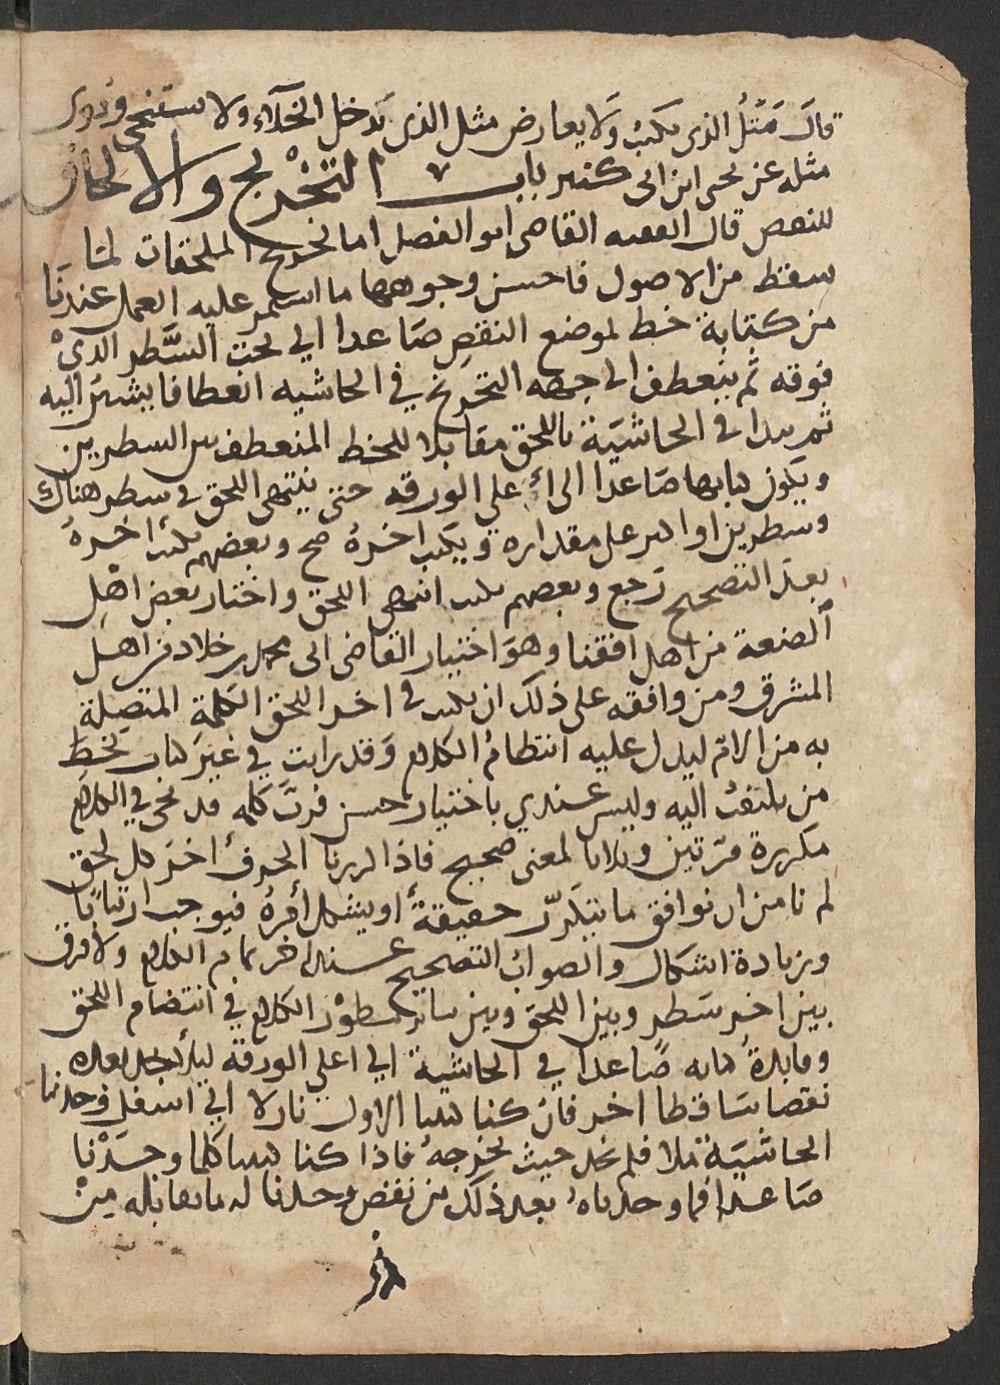 قال مَثَلُ الذى يكتبُ ولا يعارض مثل الذى يَدخل الخَلَآء ولا يستنجى وروى
مثله عن يحيى ابن ابى كثير باب التخْرِيج والالحاق
للنقص قال الفقيه القاضى ابو الفضل اما تخريج الملحقات لما
سقط من الاصول فاحسن وجوهها ما استمر عليه العمل عندنَا
من كتابة خط لموضع النقصِ صَاعدا الى تحت السَّطر الذىْ
فوقه ثم ينعطف الى جهه التخريج في الحاشيه انعطافا يشير اليه
ثم يبدا في الحاشيَة باللحق مقابلا للخط المنعطف بين السطرين
ويكون كتابها صَاعدا الى أعلى الورقه حتى ينتهى اللحق في سطر هناك
وسطرين او اكثر على مقداره ويكتب اخرهُ صح وبعضهم يكتب اخرهُ
بعد التصحيح رَجع وبعضهم يكتب انتهى اللحق واختار بعض اهْل
الصنعة من اهل افقنا وهوَ اختيار القاضى ابى محمد بن خلاد من اهل
المشرق ومن وافقه على ذلك ان يكتب في اخر اللحق الكلمةِ المتصِلة
به من الام ليدل عليه انتظامُ الكلام وَقد رايت في غير كتاب بخط
من يلتفتُ اليه وليس عندي باختيار حسن فربَّ كلمه قد تجى في الكلام
مكررة مرّتين وثلاثا لمعنى صحيح فاذا كررنا الحرفُ اخر كل لحق
لم نامن ان نوافق ما يتكرّر حقيقةً او يشكل أمرهُ فيوجب ارتيابًا
وزيادة اشكال والصوابُ التصحيح عند اخر تمام الكلام ولا فرق
بين اخر سَطر وبين اللحق وبين سائر سطوْر الكلام في انتضام اللحق
ومقابلةُ كتابه صَاعدا في الحاشيَة الى اعلى الورقة ليلا نجد بعده
نقصا سَاقطا اخر فان كنا كتبنا الاول نازلا الى اسفل وجدنا
الحاشيَة ملا فلم نجد حيث نخرجهُ فاذا كنا كتبنا كلما وجَدْنا
صَاعدا فما وجدناهُ بعد ذلك من نقص وجدنا له ما يقابله مِنْ